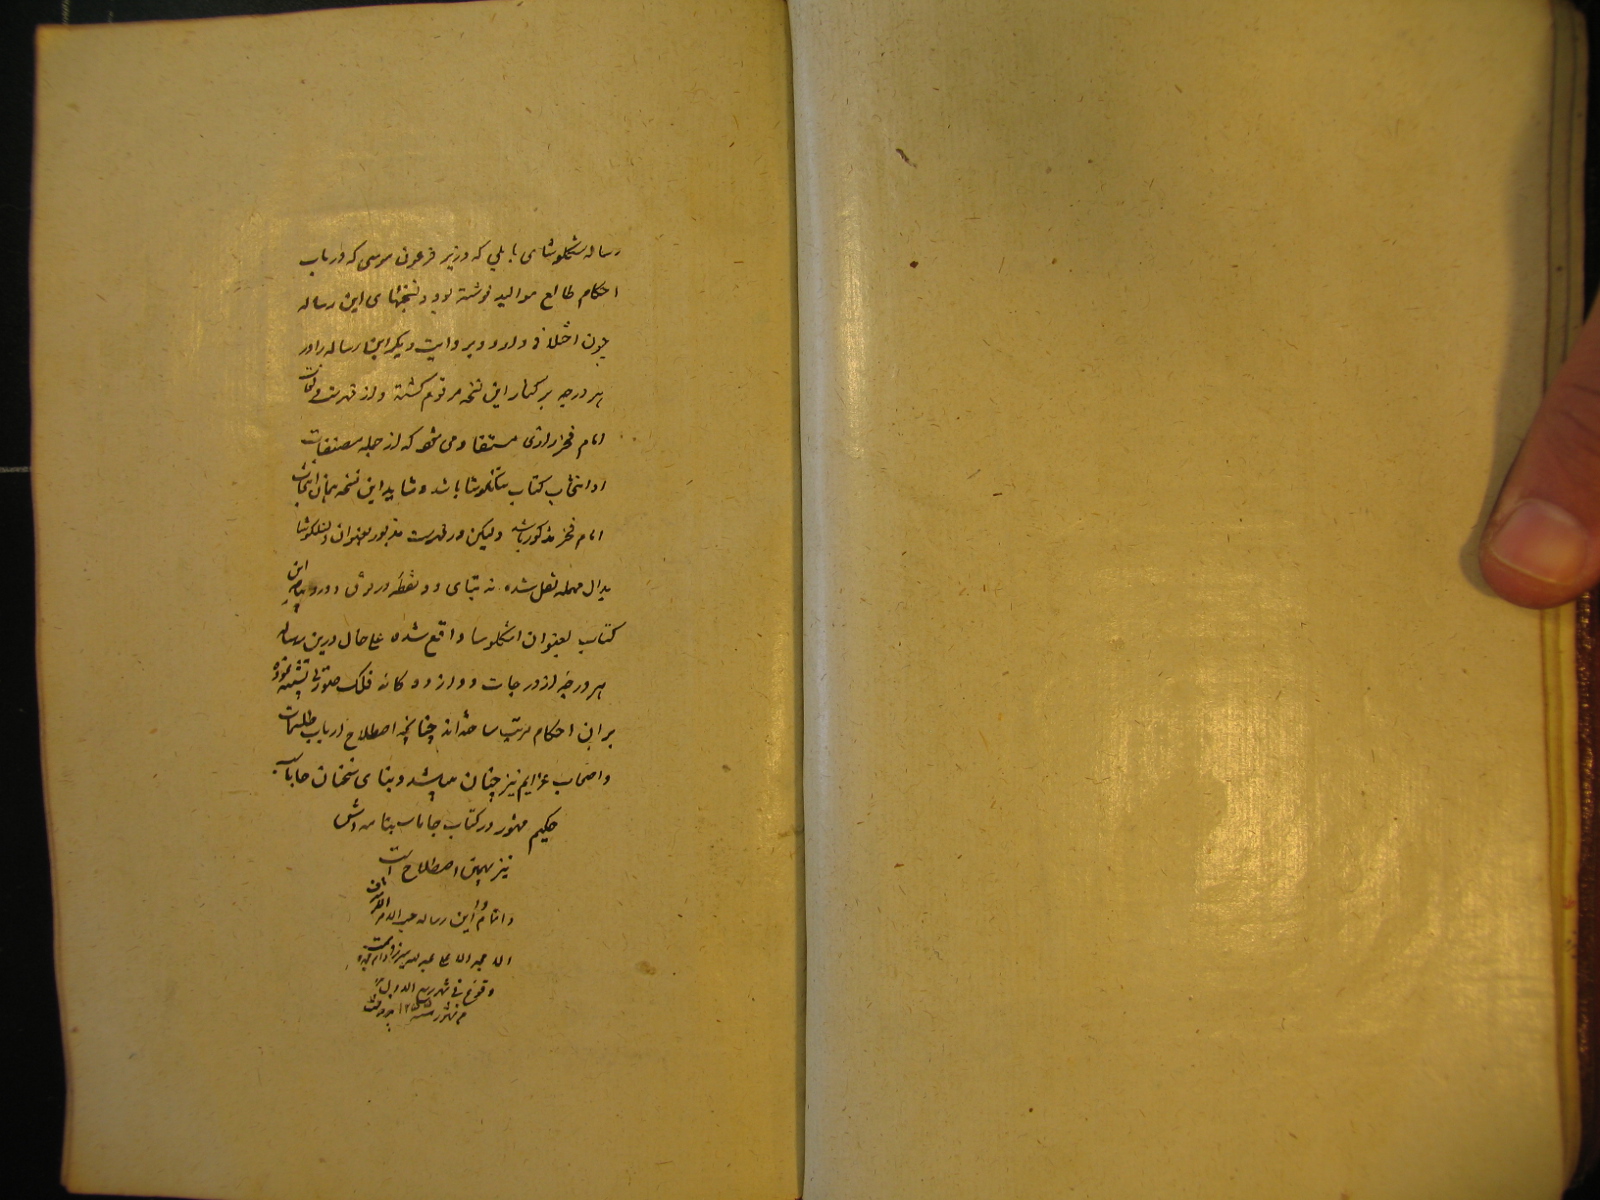 رساله شنکلوشای بابلی که وزیر فرعون موسی که در باب
احکام طالع موالید نوشته بود و نسخهای این رساله
چون اختلاف دارد و بروایت دیگر این رساله را در
هر درجه بر کنار این نسخه مرقوم گشته و از فهرست مؤلفات
امام فخر رازی مستفاد می شود که از جمله مصنفات
او انتخاب کتاب تنکلوشا باشد و شاید این نسخه همان انتخاب
امام فخر مذکور باشد ولیکن در فهرست مذبور بعنوان دنکلوشا
بدال مهمله نقل شده نه بتای دو نقطه در فوق و در دیباچه این
کتاب بعنوان اشکلوسا واقع شده علی حال درین رساله
هر درجه از درجات دوازده کانه فلک صورتی تشبیه نموده
بران احکام مرتب ساخته اند چنانچه اصطلاح ارباب طلسمات
و اصحاب عزایم نیز چنان میباشد و بنای سخنان جاماسب
حکیم مشهور در کتاب جاماسب نامه اش
نیز بهمین اصطلاح است
و انا ... این رساله عبد الله
الله عبد الله
وقوع فی شهر ربیع الاول
من شهور سنه ۱۲۵۵